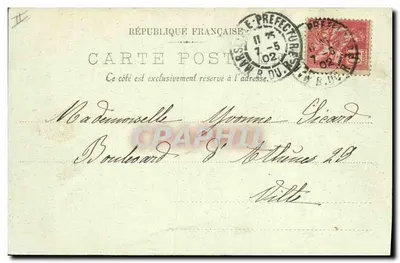 II
RÉPUBLIQUE FRANÇAISE
CARTE POST
Ce côté est exclusivement réservé à l'adresse
MARSEILLE-PREFECTURE
11 25
7 - 5
02
B. DU. R.
PREFECTURE
7 - 5
02
B. DU. R.
Mademoiselle Yvonne Sicard
CRAPHU
Boulevard d'Athènes 29
Ville